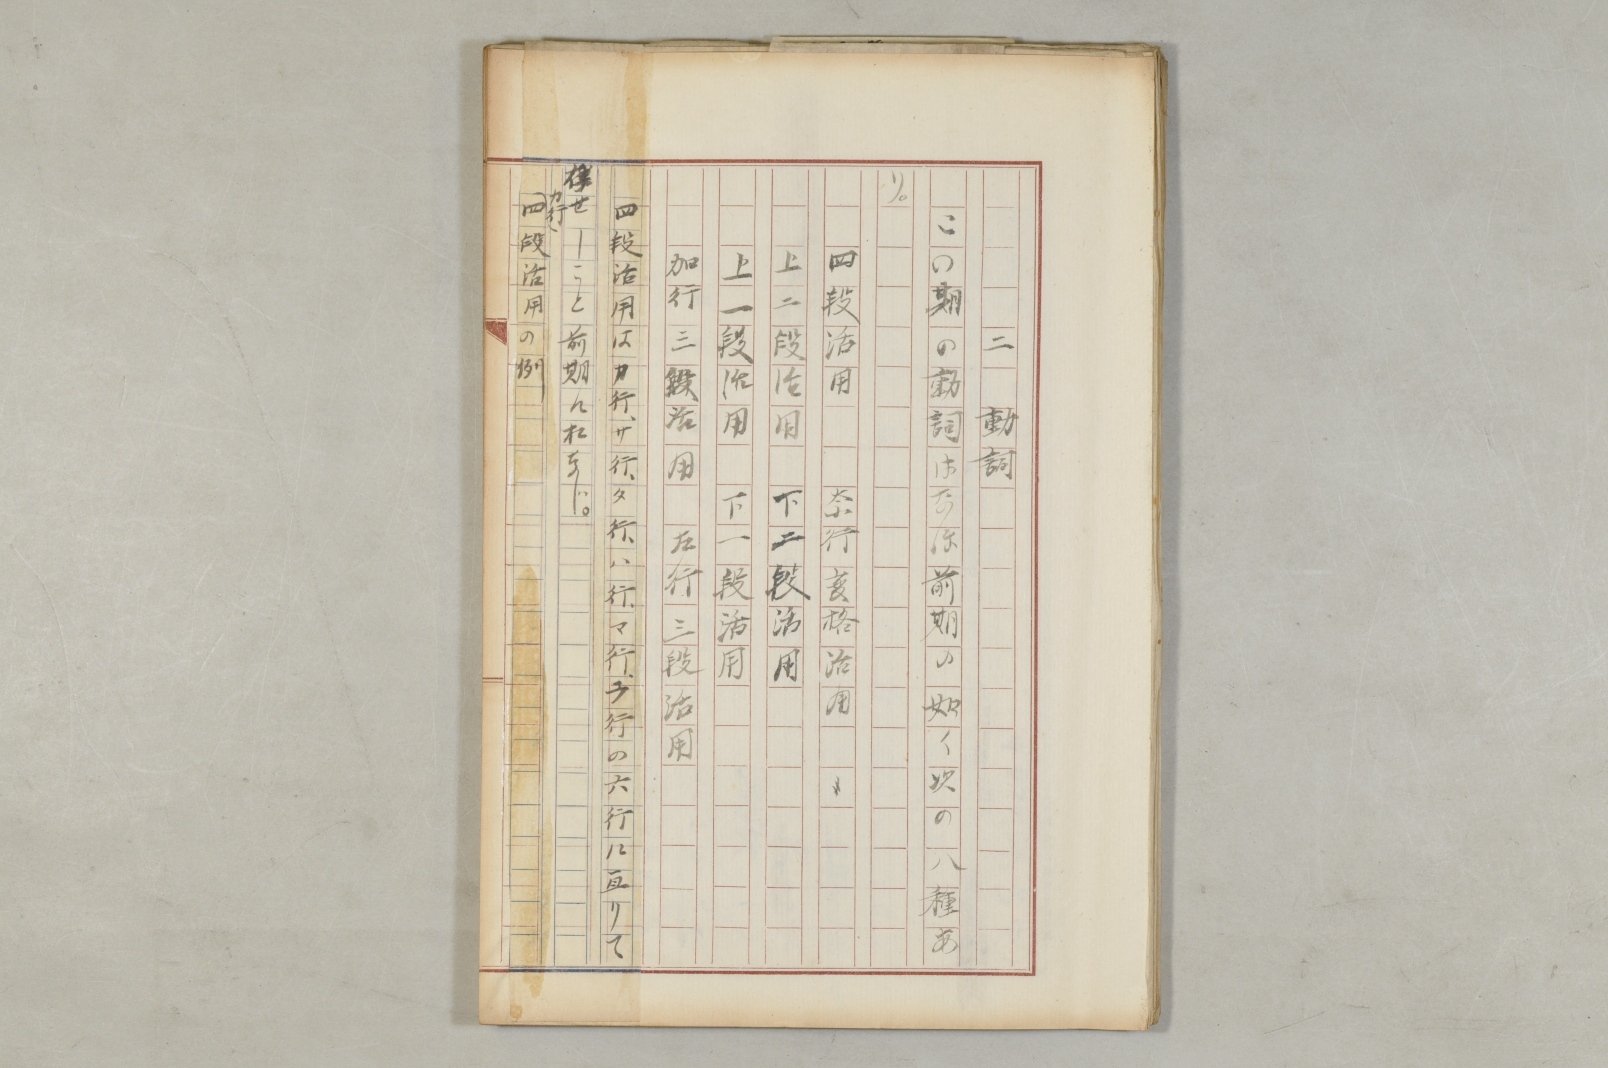 二 動詞
この期の動詞はなほ前期の如く次の八種あ
り。
四段活用 奈行変格活用
上二段活用 下二段活用
上一段活用 下一段活用
加行三段活用 左行三段活用
四段活用はカ行、サ行、タ行、ハ行、マ行、ラ行の六行に亘りて
存せしこと前期に於なじ。
カ行
四段活用の例